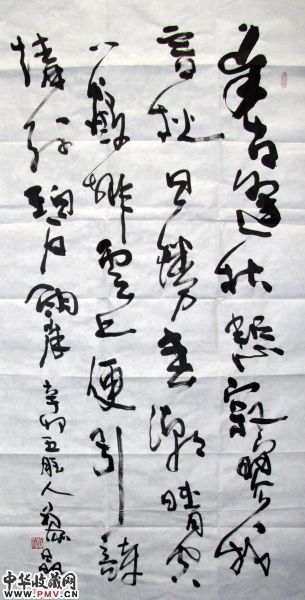 自古逢秋悲寂寥我
言秋日勝春朝晴空
一鶴排雲上便引詩
情到碧霄 辛卯 人
中华收藏网
www.PMV.cn